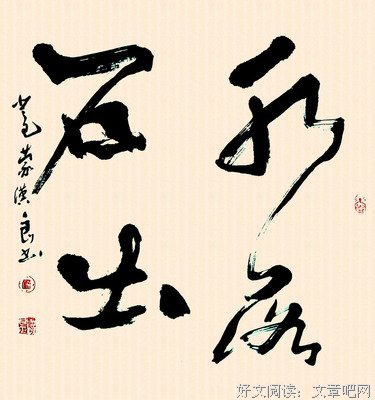 水落
石出
蒙漢良书
好文阅读：文章吧网